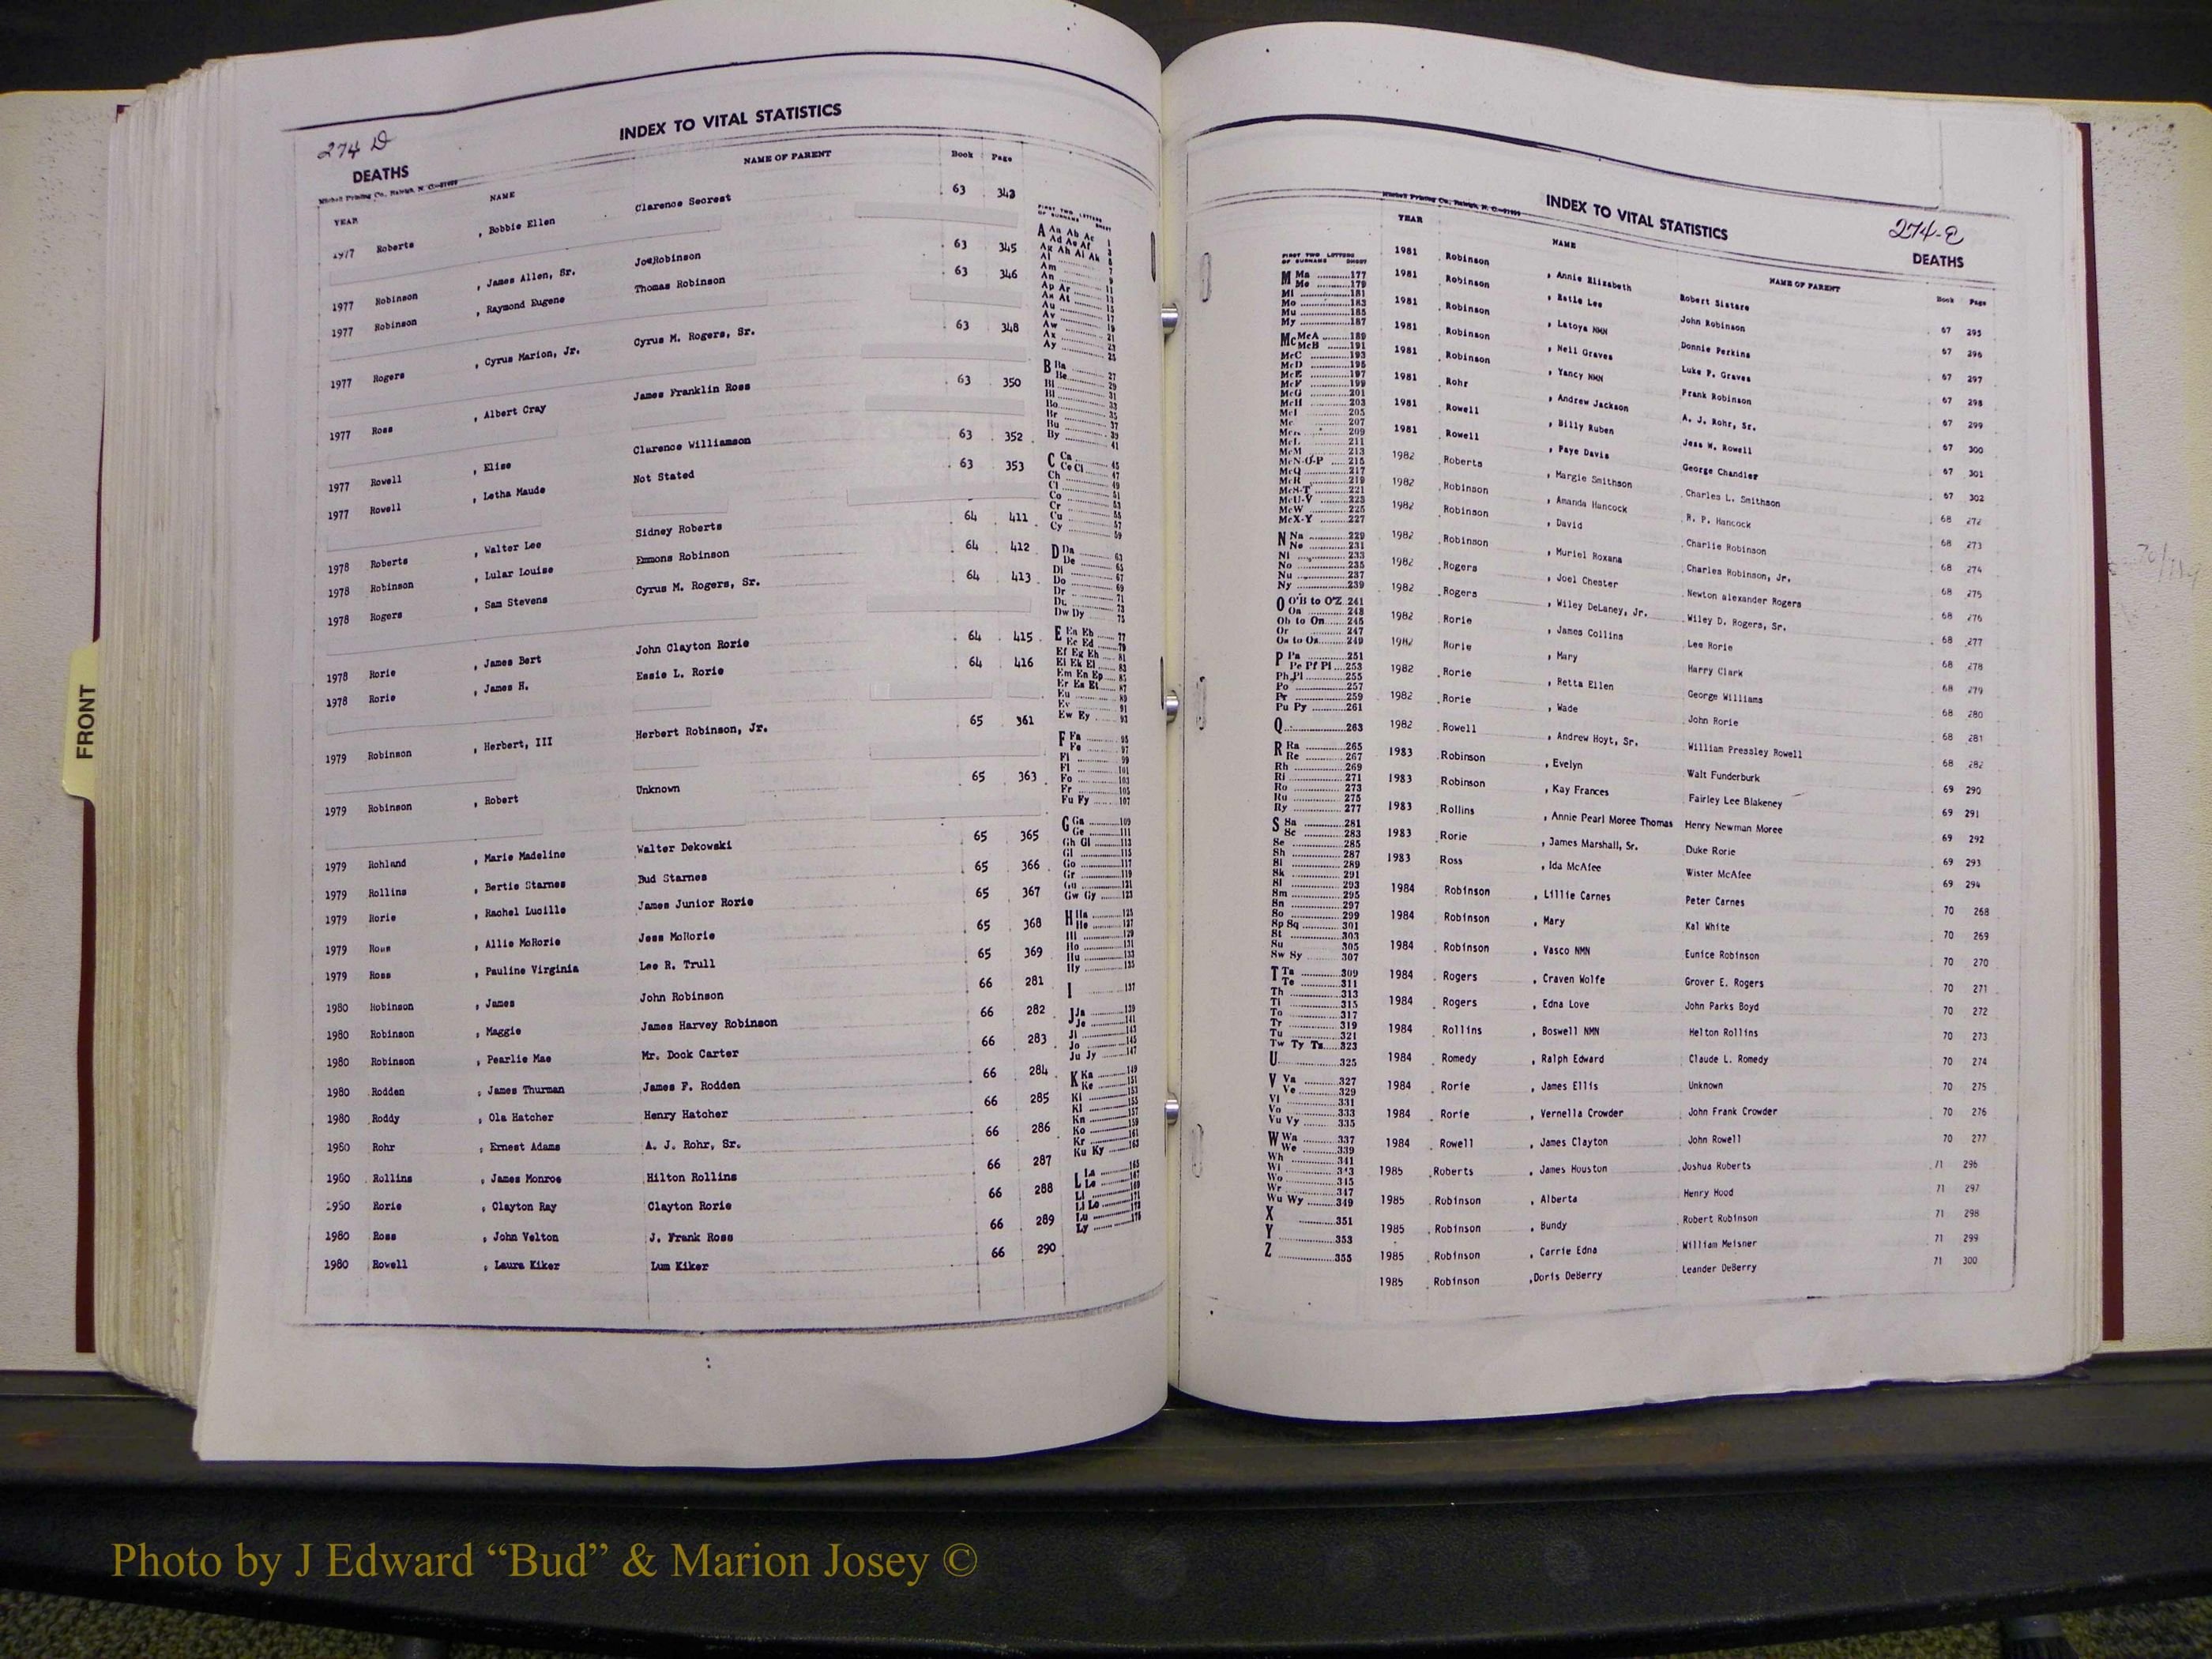 274 D
INDEX TO VITAL STATISTICS
DEATHS
Mitchell Printing Co., Raleigh, N. C.
YEAR NAME NAME OF PARENT Book Page
1977 Roberts , Bobbie Ellen Clarence Secrest 63 343
1977 Robinson , James Allen, Sr. Joe Robinson 63 345
1977 Robinson , Raymond Eugene Thomas Robinson 63 346
1977 Rogers , Cyrus Marion, Jr. Cyrus M. Rogers, Sr. 63 348
1977 Ross , Albert Cray James Franklin Ross 63 350
1977 Rowell , Elise Clarence Williamson 63 352
1977 Rowell , Letha Maude Not Stated 63 353
1978 Roberts , Walter Lee Sidney Roberts 64 411
1978 Robinson , Lular Louise Emmons Robinson 64 412
1978 Rogers , Sam Stevens Cyrus M. Rogers, Sr. 64 413
1978 Rorie , James Bert John Clayton Rorie 64 415
1978 Rorie , James H. Essie L. Rorie 64 416
1979 Robinson , Herbert, III Herbert Robinson, Jr. 65 361
1979 Robinson , Robert Unknown 65 363
1979 Rohland , Marie Madeline Walter Dekowski 65 365
1979 Rollins , Bertie Starnes Bud Starnes 65 366
1979 Rorie , Rachel Lucille James Junior Rorie 65 367
1979 Ross , Allie McRorie Jess McRorie 65 368
1979 Ross , Pauline Virginia Lee R. Trull 65 369
1980 Robinson , James John Robinson 66 281
1980 Robinson , Maggie James Harvey Robinson 66 282
1980 Robinson , Pearlie Mae Mr. Dock Carter 66 283
1980 Rodden , James Thurman James F. Rodden 66 284
1980 Roddy , Ola Hatcher Henry Hatcher 66 285
1980 Rohr , Ernest Adams A. J. Rohr, Sr. 66 286
1980 Rollins , James Monroe Hilton Rollins 66 287
1980 Rorie , Clayton Ray Clayton Rorie 66 288
1980 Ross , John Velton J. Frank Ross 66 289
1980 Rowell , Laura Kiker Lum Kiker 66 290
FIRST TWO LETTERS OF SURNAME SHEET
A Aa Ab Ac 1
Ad Ae Af 3
Ag Ah Ai Ak 5
Al 7
Am 9
An 11
Ap Ar 13
As At 15
Au 17
Av 19
Aw 21
Ax 23
Ay 25
B Ba 27
Be 29
Bi 31
Bl 33
Bo 35
Br 37
Bu 39
By 41
C Ca 45
Ce Ci 47
Ch 49
Cl 51
Co 53
Cr 55
Cu 57
Cy 59
D Da 63
De 65
Di 67
Do 69
Dr 71
Du 73
Dw Dy 75
E Ea Eb 77
Ec Ed 79
Ef Eg Eh 81
Ei Ek El 83
Em En Ep 85
Er Es Et 87
Eu 89
Ev 91
Ew Ey 93
F Fa 95
Fe 97
Fi 99
Fl 101
Fo 103
Fr 105
Fu Fy 107
G Ga 109
Ge 111
Gh Gi 113
Gl 115
Go 117
Gr 119
Gu 121
Gw Gy 123
H Ha 125
He 127
Hi 129
Ho 131
Hu 133
Hy 135
I 137
J Ja 139
Je 141
Ji 143
Jo 145
Ju Jy 147
K Ka 149
Ke 151
Ki 153
Kl 155
Kn 157
Ko 159
Kr 161
Ku Ky 163
L La 165
Le 167
Li 169
Ll Lo 171
Lu 173
Ly 175
Mitchell Printing Co., Raleigh, N. C.
INDEX TO VITAL STATISTICS
274-E
DEATHS
FIRST TWO LETTERS OF SURNAME SHEET
M Ma 177
Me 179
Mi 181
Mo 183
Mu 185
My 187
Mc McA 189
McB 191
McC 193
McD 195
McE 197
McF 199
McG 201
McH 203
McI 205
Mc 207
McK 209
McL 211
McM 213
McN-O-P 215
McQ 217
McR 219
McS-T 221
McU-V 223
McW 225
McX-Y 227
N Na 229
Ne 231
Ni 233
No 235
Nu 237
Ny 239
O O'B to O'Z 241
Oa 243
Ob to On 245
Or 247
Os to Oz 249
P Pa 251
Pe Pf Pi 253
Ph Pl 255
Po 257
Pr 259
Pu Py 261
Q 263
R Ra 265
Re 267
Rh 269
Ri 271
Ro 273
Ru 275
Ry 277
S Sa 281
Sc 283
Se 285
Sh 287
Si 289
Sk 291
Sl 293
Sm 295
Sn 297
So 299
Sp Sq 301
St 303
Su 305
Sw Sy 307
T Ta 309
Te 311
Th 313
Ti 315
To 317
Tr 319
Tu 321
Tw Ty Tz 323
U 325
V Va 327
Ve 329
Vi 331
Vo 333
Vu Vy 335
W Wa 337
We 339
Wh 341
Wi 343
Wo 345
Wr 347
Wu Wy 349
X 351
Y 353
Z 355
YEAR NAME NAME OF PARENT Book Page
1981 Robinson , Annie Elizabeth Robert Sistare 67 295
1981 Robinson , Katie Lee John Robinson 67 296
1981 Robinson , Latoya NMN Donnie Perkins 67 297
1981 Robinson , Nell Graves Luke P. Graves 67 298
1981 Robinson , Yancy NMN Frank Robinson 67 299
1981 Rohr , Andrew Jackson A. J. Rohr, Sr. 67 300
1981 Rowell , Billy Ruben Jess W. Rowell 67 301
1981 Rowell , Faye Davis George Chandler 67 302
1982 Roberts , Margie Smithson Charles L. Smithson 68 272
1982 Robinson , Amanda Hancock R. P. Hancock 68 273
1982 Robinson , David Charlie Robinson 68 274
1982 Robinson , Muriel Roxana Charles Robinson, Jr. 68 275
1982 Rogers , Joel Chester Newton alexander Rogers 68 276
1982 Rogers , Wiley DeLaney, Jr. Wiley D. Rogers, Sr. 68 277
1982 Rorie , James Collins Lee Rorie 68 278
1982 Rorie , Mary Harry Clark 68 279
1982 Rorie , Retta Ellen George Williams 68 280
1982 Rorie , Wade John Rorie 68 281
1982 Rowell , Andrew Hoyt, Sr. William Pressley Rowell 68 282
1983 Robinson , Evelyn Walt Funderburk 69 290
1983 Robinson , Kay Frances Fairley Lee Blakeney 69 291
1983 Rollins , Annie Pearl Moree Thomas Henry Newman Moree 69 292
1983 Rorie , James Marshall, Sr. Duke Rorie 69 293
1983 Ross , Ida McAfee Wister McAfee 69 294
1984 Robinson , Lillie Carnes Peter Carnes 70 268
1984 Robinson , Mary Kal White 70 269
1984 Robinson , Vasco NMN Eunice Robinson 70 270
1984 Rogers , Craven Wolfe Grover E. Rogers 70 271
1984 Rogers , Edna Love John Parks Boyd 70 272
1984 Rollins , Boswell NMN Helton Rollins 70 273
1984 Romedy , Ralph Edward Claude L. Romedy 70 274
1984 Rorie , James Ellis Unknown 70 275
1984 Rorie , Vernella Crowder John Frank Crowder 70 276
1984 Rowell , James Clayton John Rowell 70 277
1985 Roberts , James Houston Joshua Roberts 71 296
1985 Robinson , Alberta Henry Hood 71 297
1985 Robinson , Bundy Robert Robinson 71 298
1985 Robinson , Carrie Edna William Meisner 71 299
1985 Robinson ,Doris DeBerry Leander DeBerry 71 300
FRONT
Photo by J Edward “Bud” & Marion Josey ©